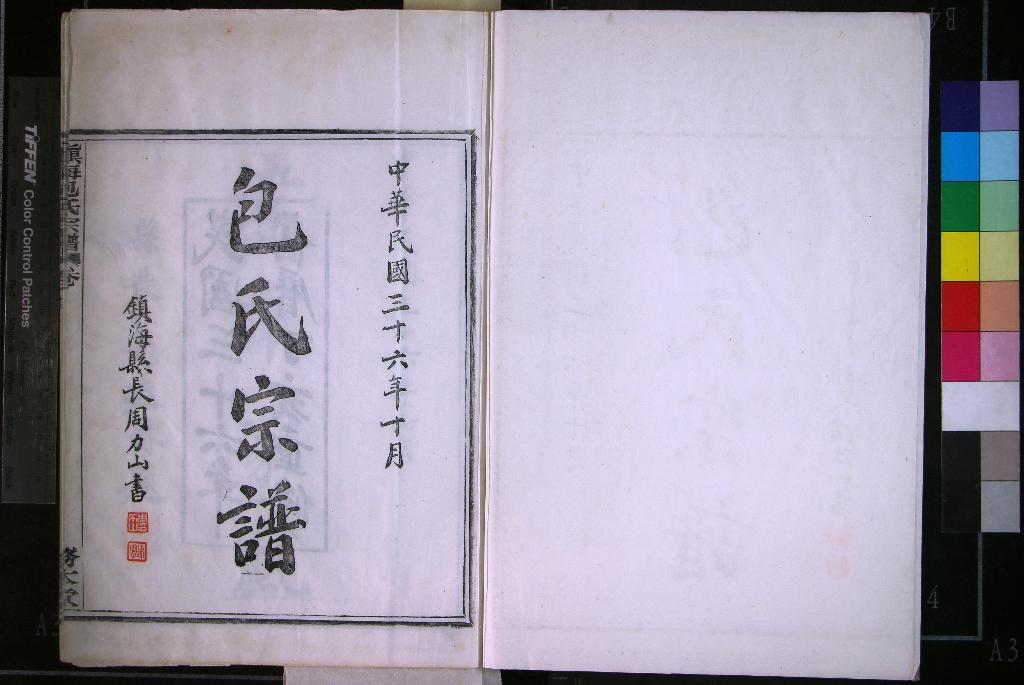 中華民國三十六年十月
包氏宗譜
鎮海縣長周力山書
鎮海包氏宗譜
卷
TIFFEN Color Control Patches
A3
4
B4